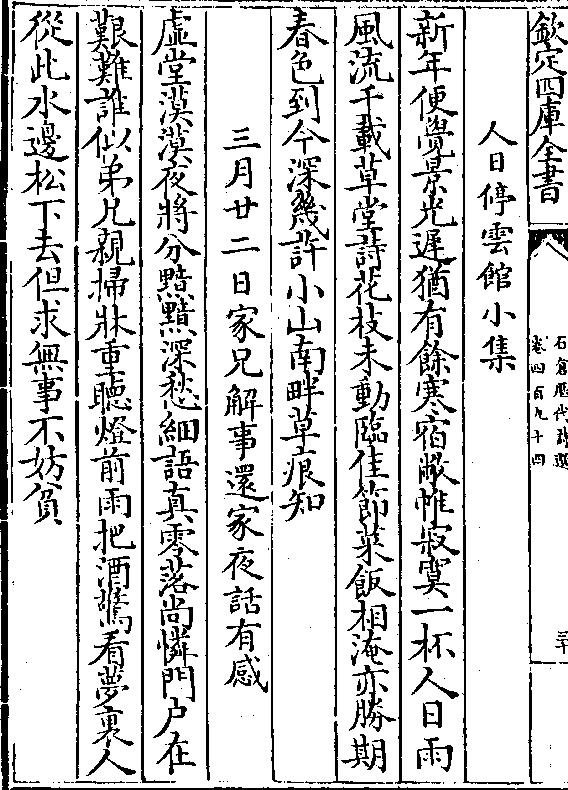 欽定四庫全書
石倉歷代詩選
卷四百九十四
三十
人日停雲館小集
新年便覺景光遲猶有餘寒宿敝帷寂寞一杯人日雨
風流千載草堂詩花枝未動臨佳節菜飯相淹亦勝期
春色到今深幾許小山南畔草痕知
三月廿二日家兄解事還家夜話有感
虛堂漠漠夜將分黯黯深愁細語真零落尚憐門户在
艱難誰似弟兄親掃牀重聽燈前雨把酒驚看夢裏人
從此水邊松下去但求無事不妨貧